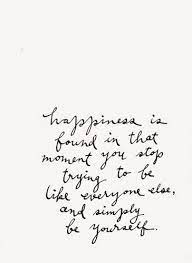 happiness is
found in that
moment you stop
trying to be
like everyone else,
and simply
be yourself.